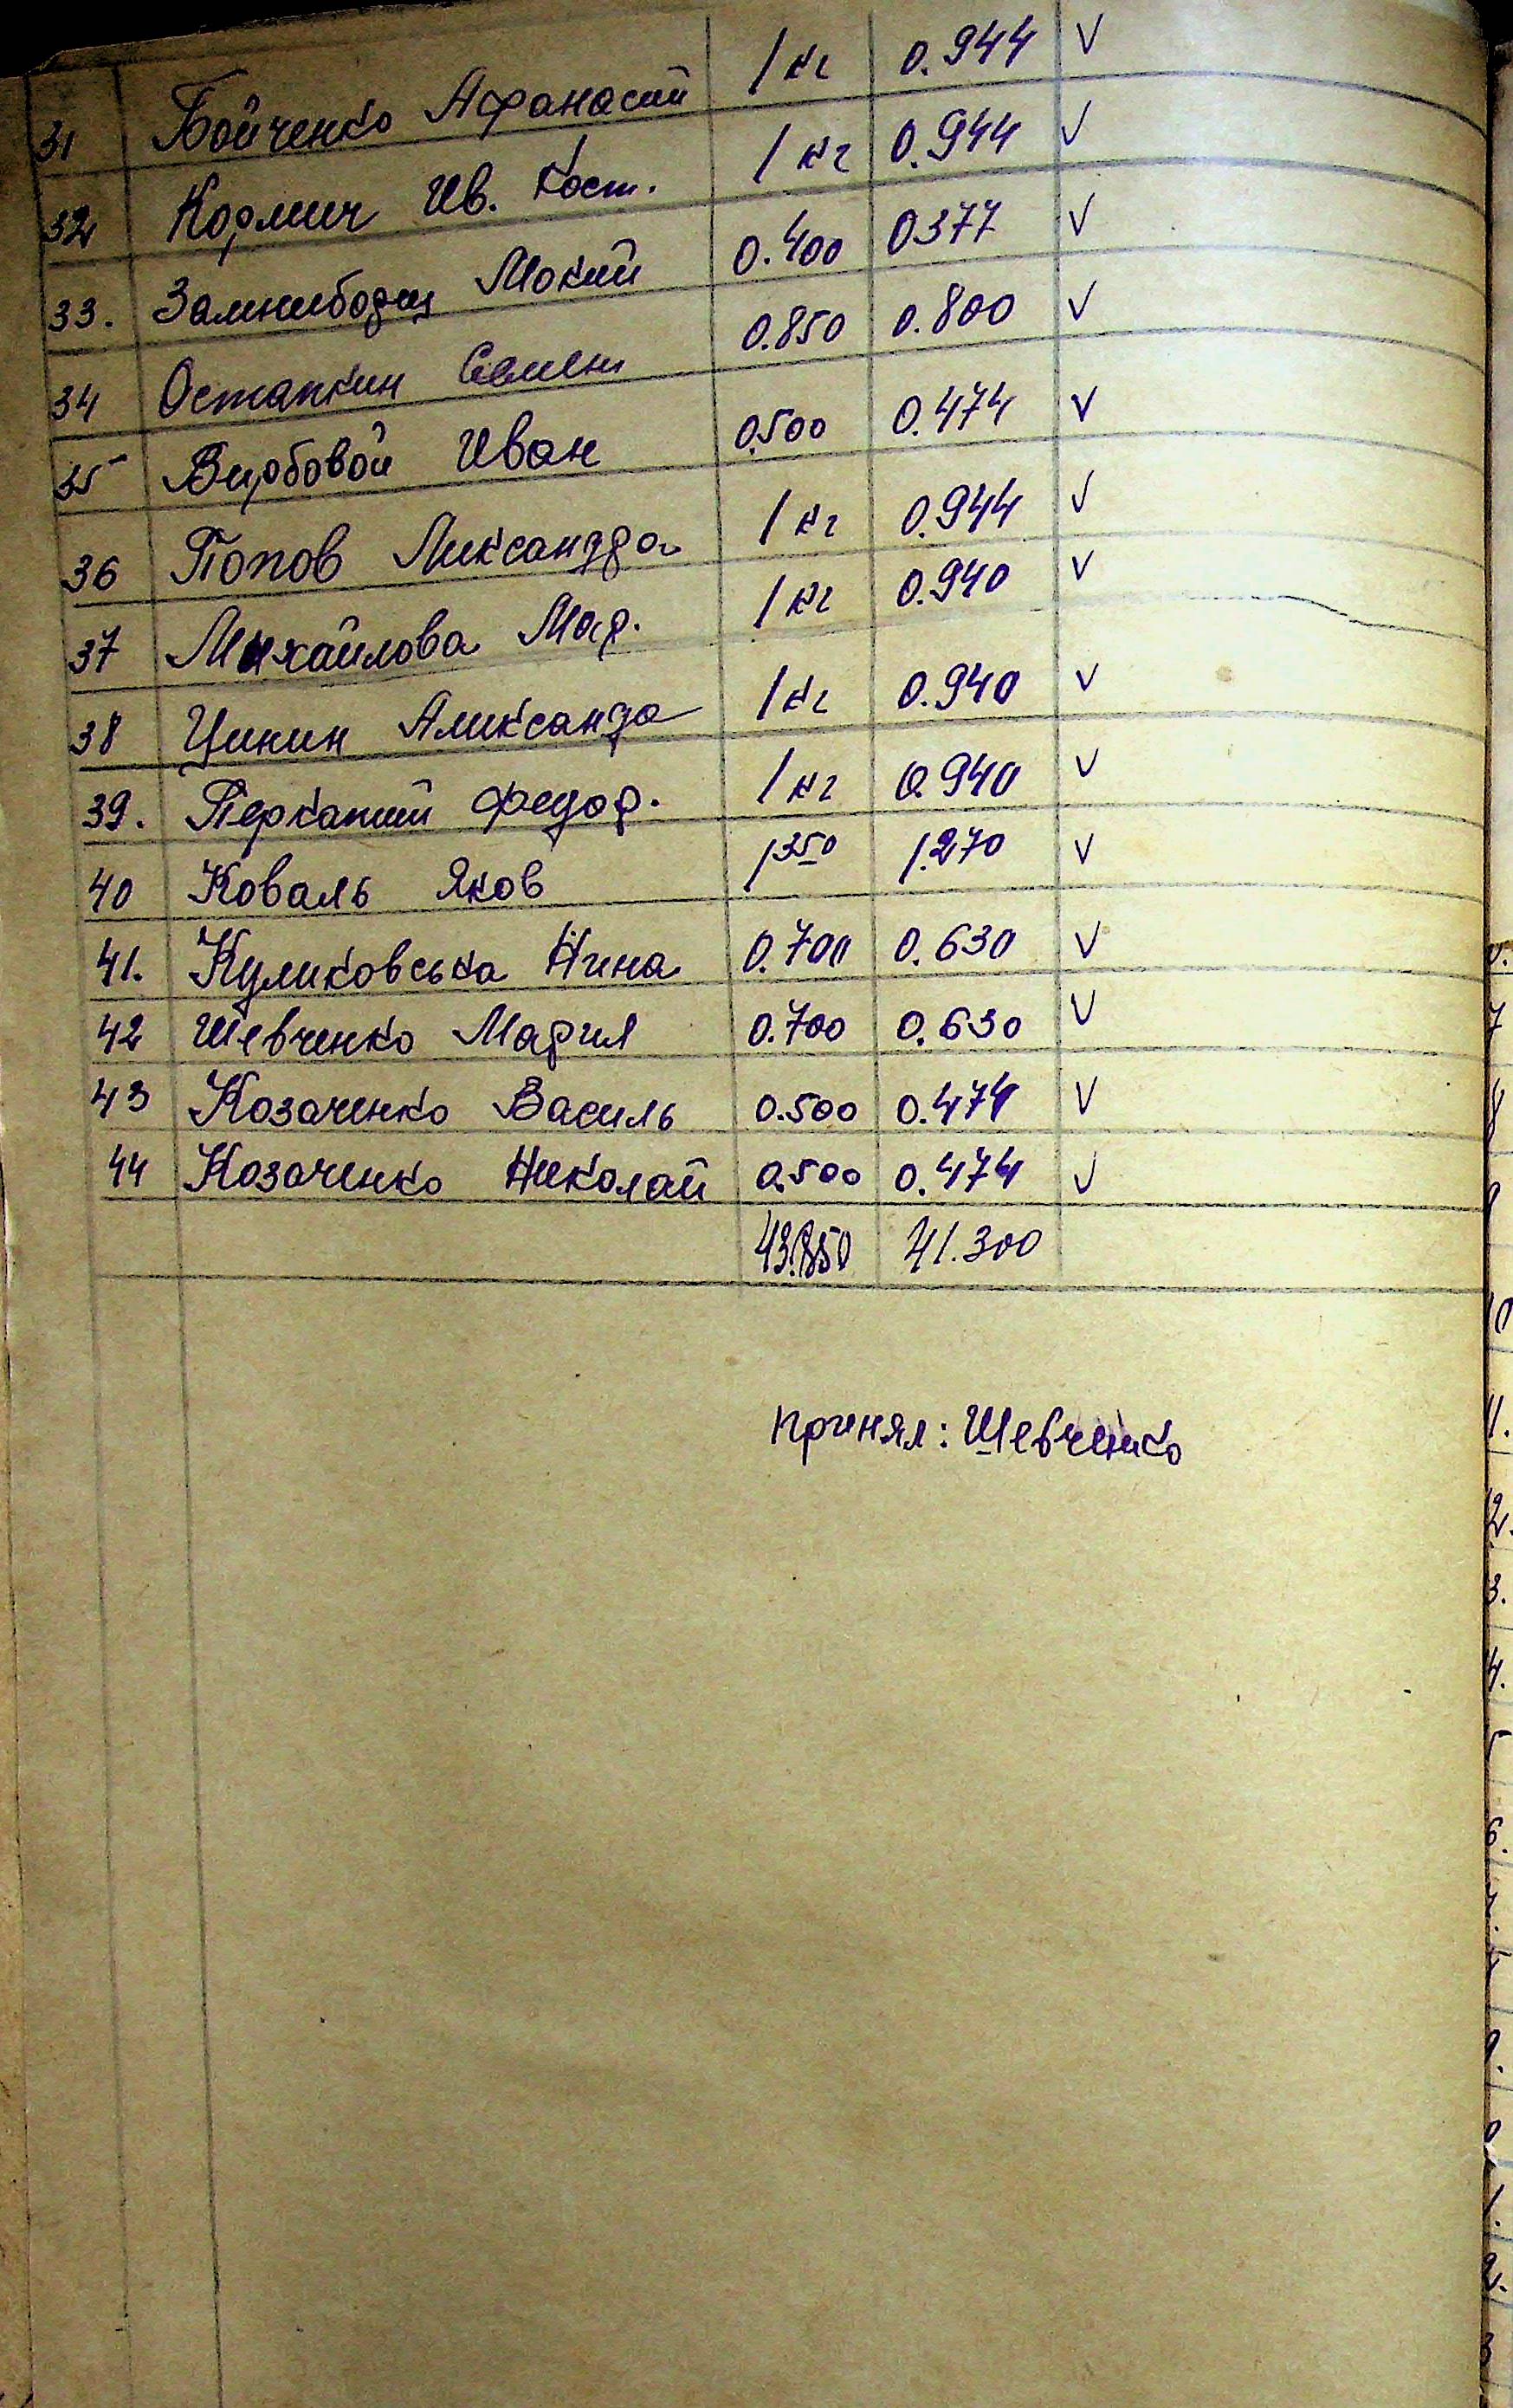 31 Бойченко Афанасий 1 кг 0.944 V
32 Кормич Ив. Кост. 1 кг 0.944 V
33. Мокий 0.400 0377 V
34 Остапкин Семен 0.850 0.800 V
35 Вирбовой Иван 0.500 0.474 V
36 Попов Александра 1 кг 0.944 V
37 Михайлова Мар. 1 кг 0.940 V
38 Цинин Александа 1 кг 0.940 V
39. Федор. 1 кг 0.940 V
40 Коваль Яков 1350 1.270 V
41. Куликовська Нина 0.700 0.630 V
42 Шевченко Мария 0.700 0.630 V
43 Козаченко Василь 0.500 0.474 V
44 Козаченко Николай 0.500 0.474 V
41.300
Принял: Шевченко